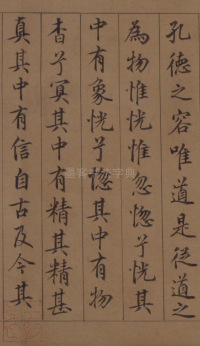 孔德之容唯道是從道之
為物惟恍惟忽惚兮恍其
中有象恍兮惚其中有物
杳兮冥其中有精其精甚
真其中有信自古及今其